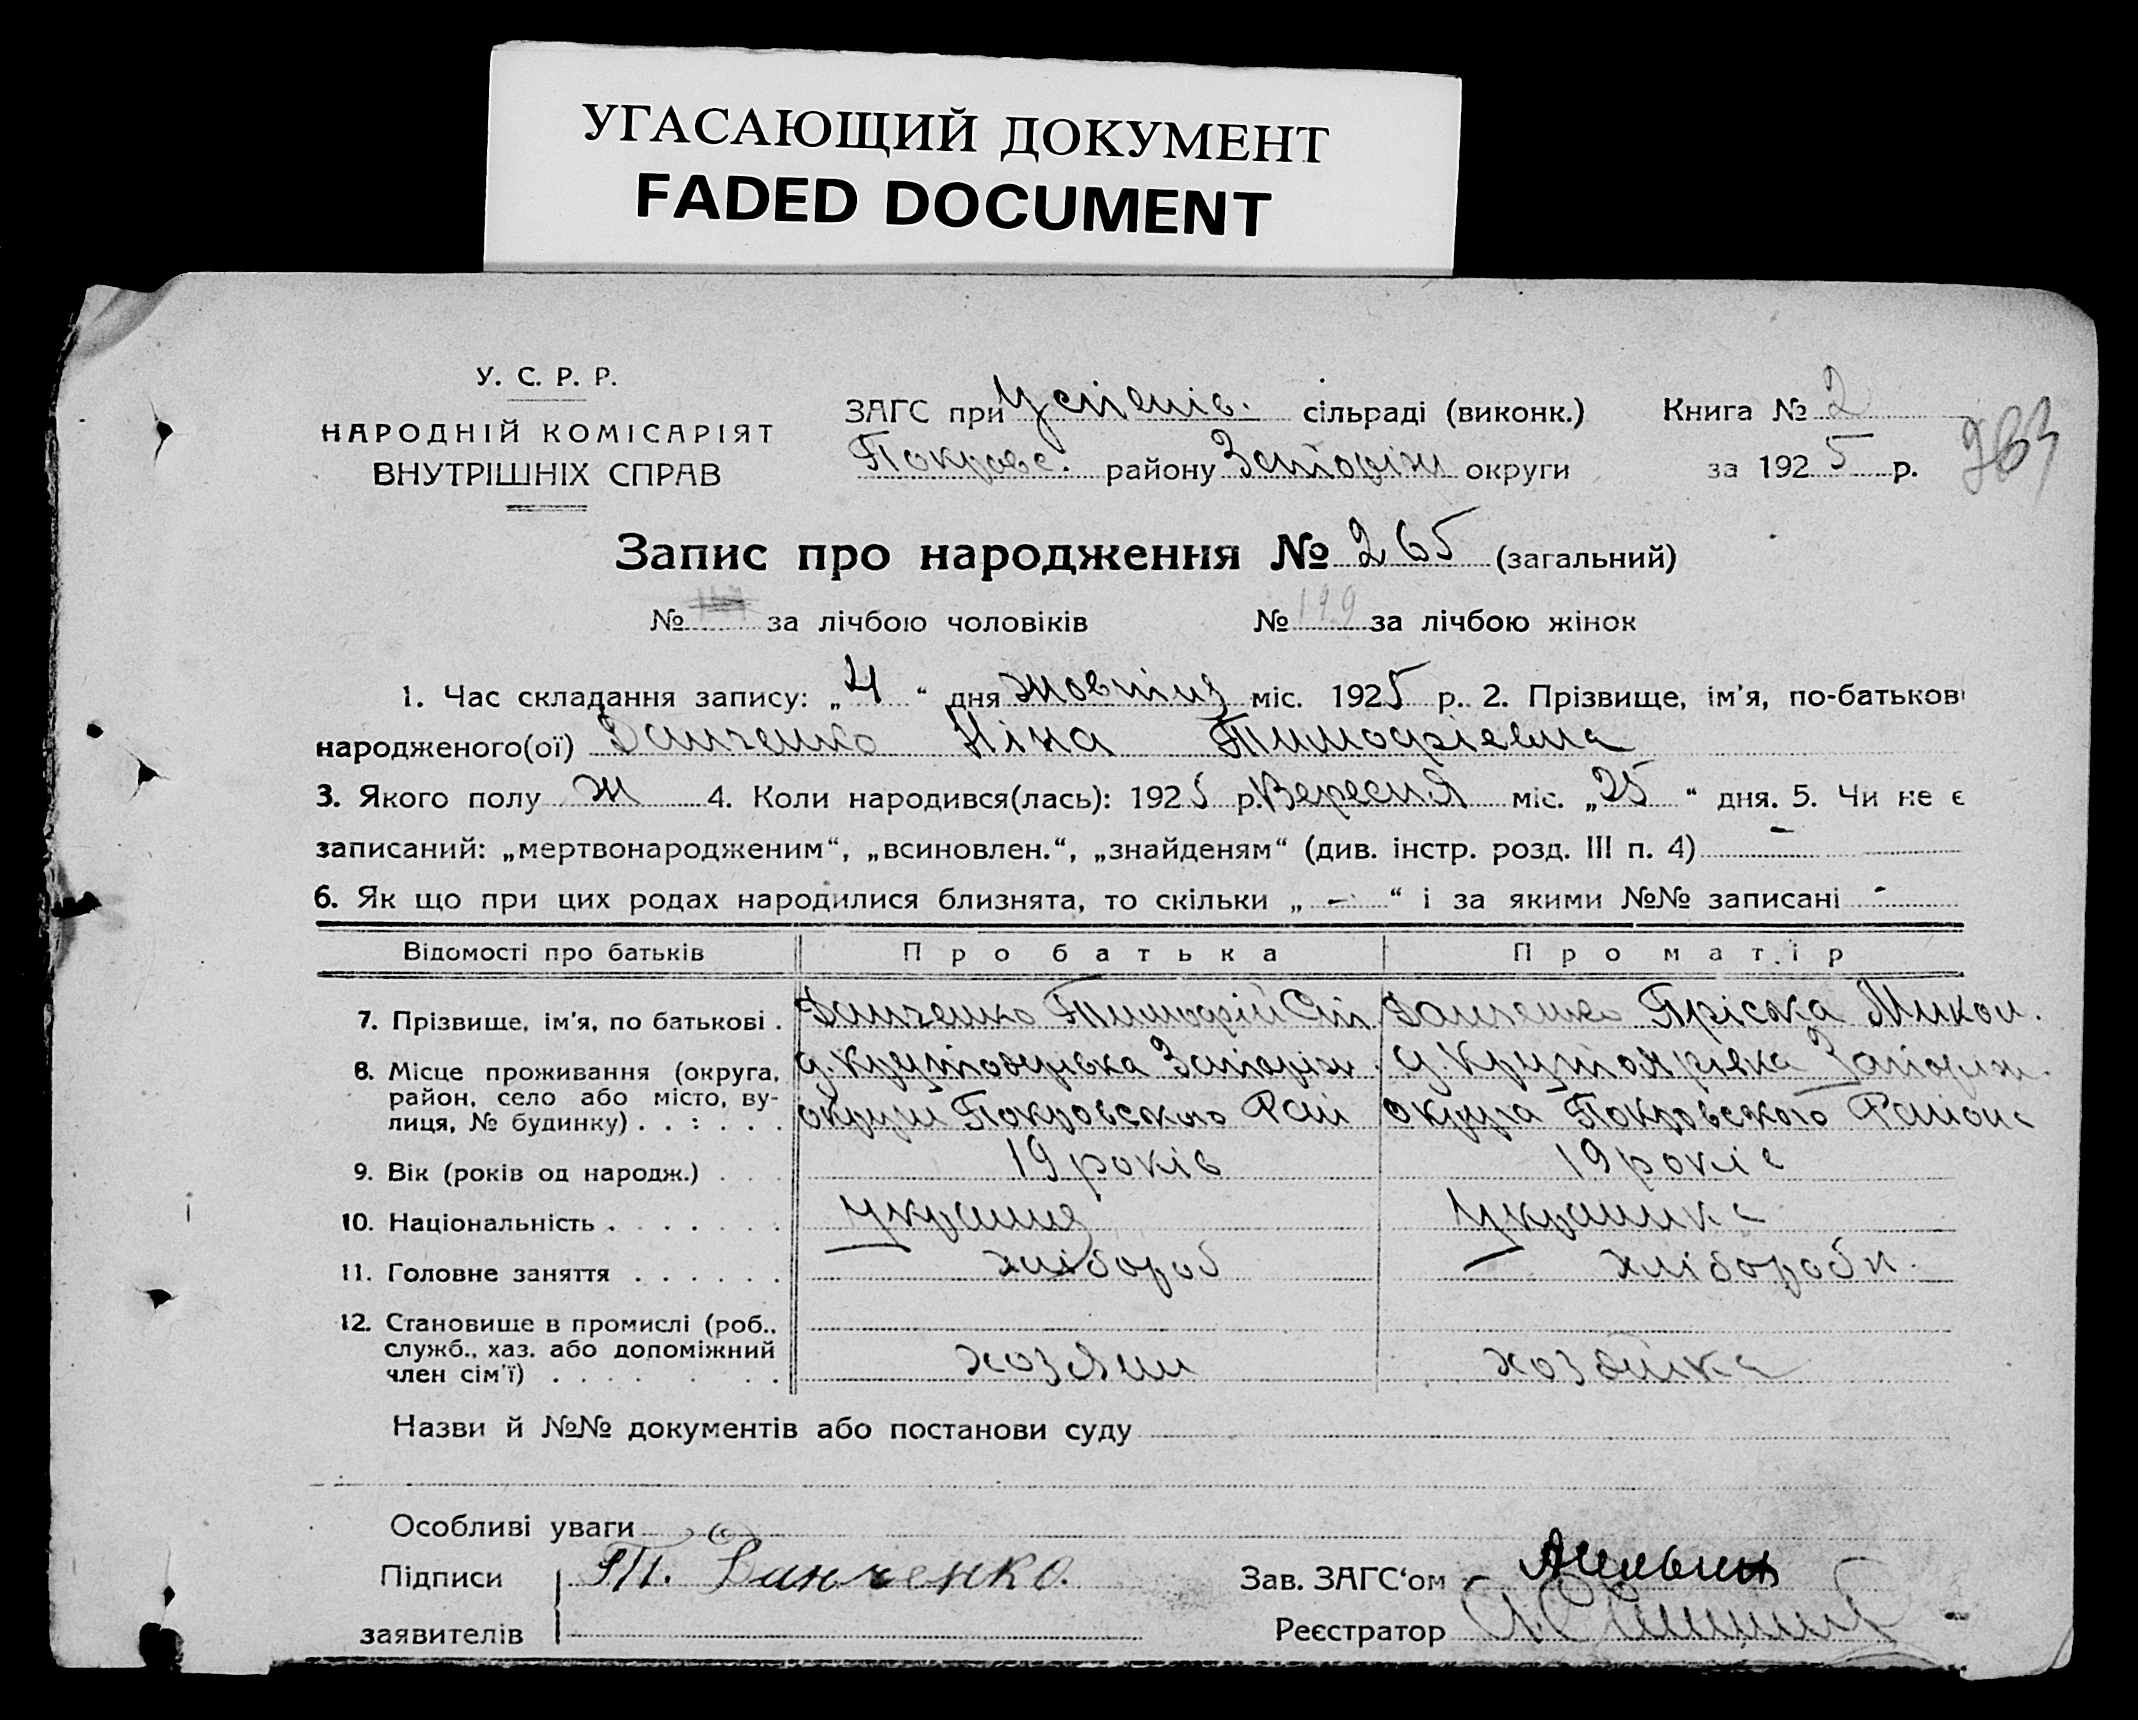 УГАСАЮЩИЙ ДОКУМЕНТ
FADED DOCUMENT
У. С. Р. Р.
НАРОДНІЙ КОМІСАРІЯТ
ВНУТРІШНІХ СПРАВ
ЗАГС при Успенів. сільраді (виконк.)
Покровс. району Запоріж округи
Книга № 2
за 1925 р.
Запис про народження № 265 (загальний)
№ за лічбою чоловіків № 129 за лічбою жінок
1. Час складання запису: „4“ дня жовтня міс. 1925 р. 2. Прізвище, ім'я, по-батьков
народженого(ої) Данченко Ніна Тимофіевна
3. Якого полу ж 4. Коли народився(лась): 1925 р. Вересня міс. „25“ дня. 5. Чи не є
записаний: „мертвонародженим“, „всиновлен.“, „знайденям“ (див. інстр. розд. III п. 4) -
6. Як що при цих родах народилися близнята, то скільки „-“ і за якими №№ записані -
Відомості про батьків Про батька Про матір
7. Прізвище, ім'я, по батькові . Данченко Тимофій Данченко Пріська Микол.
8. Місце проживання (округа,
район, село або місто, ву-
лиця, № будинку) . . : . . .
Запоріж. Запоріж.
округи Покровського Рай округа Покровського Района
9. Вік (років од народж.) . . . 19 років 19 років
10. Національність . . . . . . . Украинец Украинка
11. Головне заняття . . . . . . хлібороб хлібороби.
12. Становище в промислі (роб.,
служб., хаз. або допоміжний
член сім'ї) . . . . . . . .
хозяин хозяйка
Назви й №№ документів або постанови суду
Особливі уваги
Підписи
заявителів
Т. Данченко.
Зав. ЗАГС'ом
Реєстратор